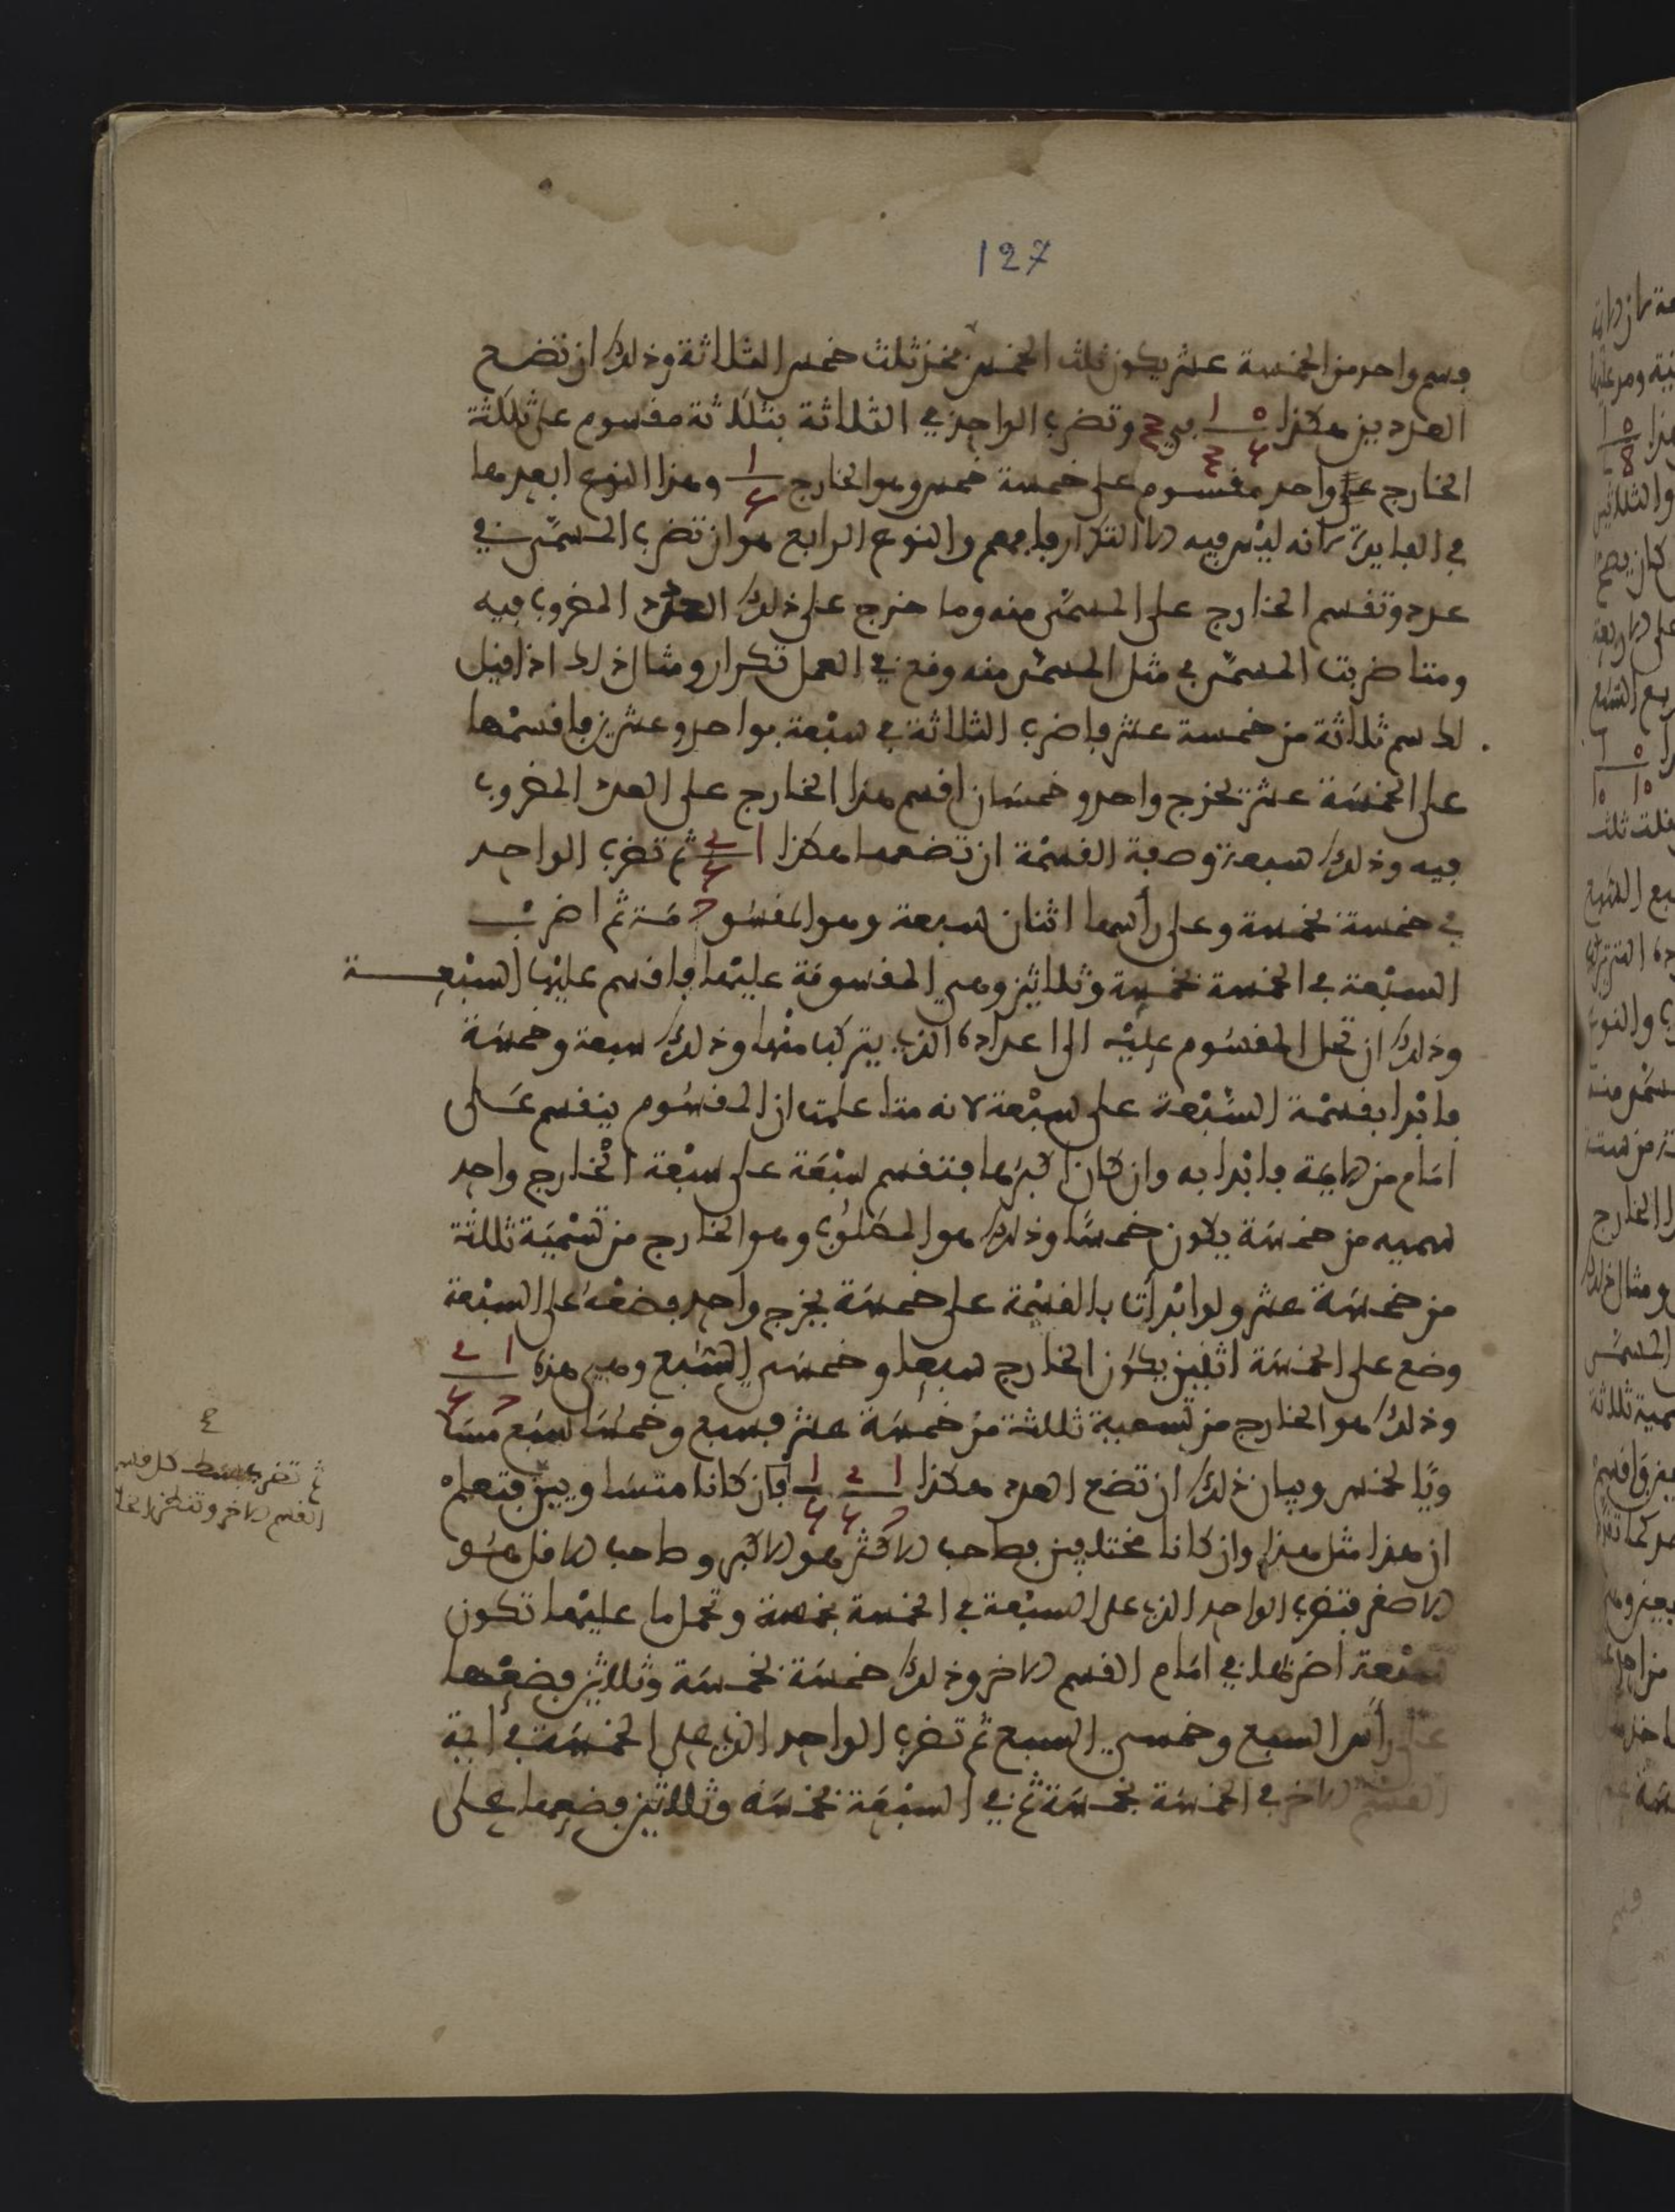 127
فسم واحد من الخمسة عشر يكون ثلث الخمس فخذ ثلث خمس الثلاثة وذلك ان تضع
العددين هكذا ٥ ا وتضرب الواحد في الثلاثة بثلاثة مقسوم على ثلثة
الخارج واحد مقسوم على خمسة خمس وهو الخارج ا وهذا النوع ابعدها
في الفايدة لانه ليس فيه الا التكرار فافهم والنوع الرابع هو ان تضرب المسمى في
عدد وتقسم الخارج على المسمى منه وما خرج على ذلك العدد المضروب فيه
ومتا ضربت المسمى في مثل المسمى منه وقع في العمل تكرار ومثال ذلك اذا قيل
لك سم ثلاثة من خمسة عشر فاضرب الثلاثة في سبعة بواحد وعشرين فاقسمها
على الخمسة عشر يخرج واحد وخمسان اقسم هذا الخارج على العدد المضروب
فيه وذلك سبعة وصفة القسمة ان تضعها هكذا ثم تضرب الواحد
في خمسة بخمسة وعلى رأسها اثنان سبعة وهو المقسو مة ثم اضرب
السبعة في الخمسة بخمسة وثلاثين وهي المقسومة عليها فاقسم عليها السبعة
وذلك ان تحل المقسوم عليه الى اعداده الذي يتركب منها وذلك سبعة وخمسة
فابدا بقسمة السبعة على سبعة لانه متا علمت ان المقسوم ينقسم على
امام من الايمة فابدا به وان كان اكبرها فتقسم سبعة على سبعة الخارج واحد
سميه من خمسة يكون خمسا وذلك هو المطلوب وهو الخارج من تسمية ثلثة
من خمسة عشر ولو ابدأت بالقسمة على خمسة يخرج واحد فضعه على السبعة
وضع على الخمسة اثنين يكون الخارج سبعا وخمسي السبع وهي هذه
وذلك هو الخارج من تسمية ثلثة من خمسة عشر فسبع وخمسا سبع مسا
ويا لخمس وبيان ذلك ان تضع العدد هكذا فان كانا متساويين فتعلم
ان هذا مثل هذا وان كانا مختلفين فصاحب الاكثر هو الاكبر وصاحب الاقل هو
الاصغر فتضرب الواحد الذي على السبعة في الخمسة بخمسة وتحمل ما عليها تكون
سبعة اضربها في امام القسم الاخر وذلك خمسة بخمسة وثلاثين فضعها
على رأس السبع وخمسي السبع ثم تضرب الواحد الذي على الخمسة في ايمة
القسم الاخر في الخمسة بخمسة ثم في السبعة بخمسة وثلاثين فضعها على
ثم تضرب بسط كل قسم
القسم الاخر وتنظر